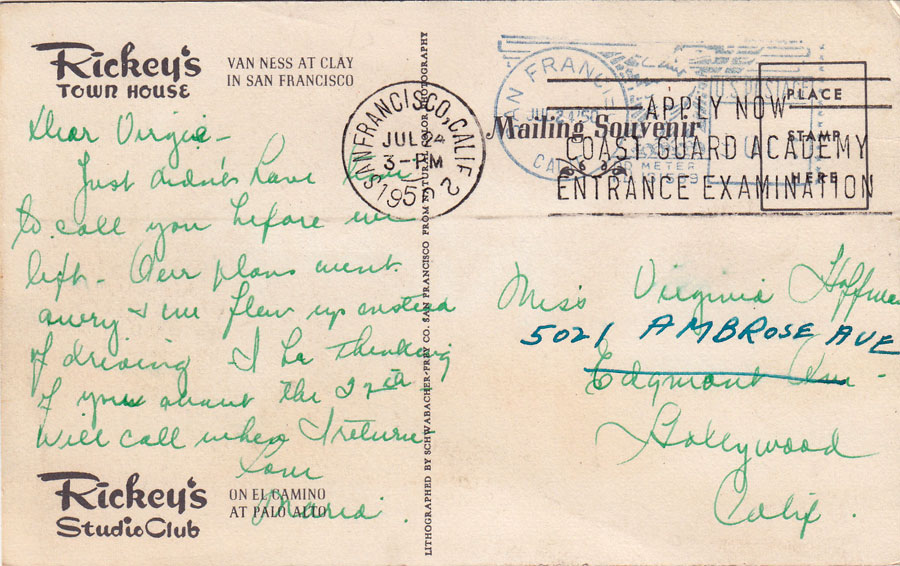 Rickey's
TOWN HOUSE
VAN NESS AT CLAY
IN SAN FRANCISCO
Dear Virgie -
Just didn't have time
to call you before we
left - Our plans went
awry & we flew up instead
of driving I'll be thinking
of you about the 27th
Will call when I return
Love
Maria.
Rickey's
Studio Club
ON EL CAMINO
AT PALO ALTO
LITHOGRAPHED BY SCHWABACHER-FREY CO. SAN FRANCISCO FROM NATURAL COLOR PHOTOGRAPHY
SAN FRANCISCO, CALIF. 2
JUL 24
3-PM
195
Mailing Souvenir
SAN FRANCISCO
JUL 24 '50
CALIF
U.S. POSTAGE
METER
APPLY NOW
COAST GUARD ACADEMY
ENTRANCE EXAMINATION
PLACE
STAMP
HERE
Miss Virginia Hoffman
5021 AMBROSE AVE
Edgmont Ave -
Hollywood
Calif.